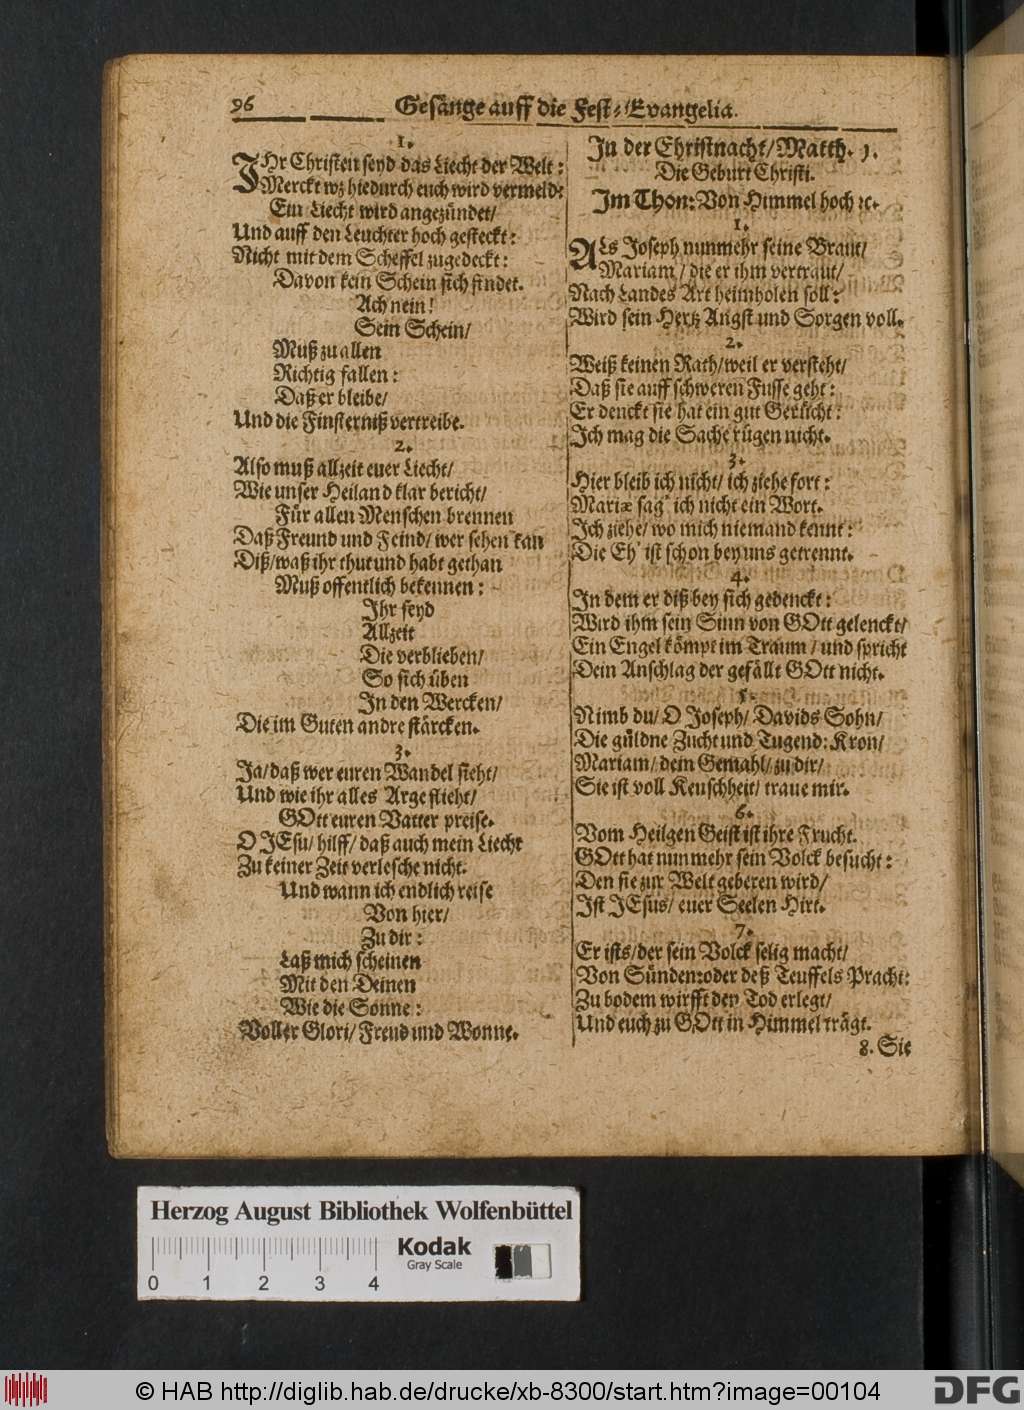 96 Gesänge auff die Fest-Evangelia.
1.
IHr Christen seyd das Liecht der Welt:
Merckt wz hiedurch euch wird vermeld:
Ein Liecht wird angezündet/
Und auff den Leuchter hoch gesteckt:
Nicht mit dem Scheffel zugedeckt:
Davon kein Schein sich findet.
Ach nein!
Sein Schein/
Muß zu allen
Richtig fallen:
Daß er bleibe/
Und die Finsterniß vertreibe.
2.
Also muß allzeit euer Liecht/
Wie unser Heiland klar bericht/
Für allen Menschen brennen
Daß Freund und Feind/ wer sehen kan
Diß/ waß ihr thut und habt gethan
Muß offentlich bekennen:
Ihr seyd
Allzeit
Die verblieben/
So sich üben
In den Wercken/
Die im Guten andre stärcken.
3.
Ja/ daß wer euren Wandel sieht/
Und wie ihr alles Arge flieht/
GOtt euren Vatter preise.
O JEsu/ hilff/ daß auch mein Liecht
Zu keiner Zeit verlesche nicht.
Und wann ich endlich reise
Von hier/
Zu dir:
Laß mich scheinen
Mit den Deinen
Wie die Sonne:
Voller Glori/ Freud und Wonne.
In der Christnacht/ Matth. 1.
Die Geburt Christi.
Im Thon: Von Himmel hoch ꝛc.
1.
ALs Joseph nunmehr seine Braut/
Mariam/ die er ihm vertraut/
Nach Landes Art heimholen soll:
Wird sein Hertz Angst und Sorgen voll.
2.
Weiß keinen Rath/ weil er versteht/
Daß sie auff schweren Fusse geht:
Er denckt sie hat ein gut Gerücht:
Ich mag die Sache rügen nicht.
3.
Hier bleib ich nicht/ ich ziehe fort:
Mariæ sag' ich nicht ein Wort.
Ich ziehe/ wo mich niemand kennt:
Die Eh' ist schon bey uns getrennt.
4.
In dem er diß bey sich gedenckt:
Wird ihm sein Sinn von GOtt gelenckt/
Ein Engel kömpt im Traum/ und spricht
Dein Anschlag der gefällt GOtt nicht.
5.
Nimb du/ O Joseph/ Davids Sohn/
Die güldne Zucht und Tugend: Kron/
Mariam/ dein Gemahl/ zu dir/
Sie ist voll Keuschheit/ traue mir.
6.
Vom Heilgen Geist ist ihre Frucht.
GOtt hat nunmehr sein Volck besucht:
Den sie zur Welt geberen wird/
Ist JEsus/ euer Seelen Hirt.
7.
Er ists/ der sein Volck selig macht/
Von Sünden: oder deß Teuffels Pracht:
Zu bodem wirfft den Tod erlegt/
Und euch zu GOtt in Himmel trägt.
8. Sie
Herzog August Bibliothek Wolfenbüttel
Kodak
Gray Scale
0 1 2 3 4
© HAB http://diglib.hab.de/drucke/xb-8300/start.htm?image=00104
DFG